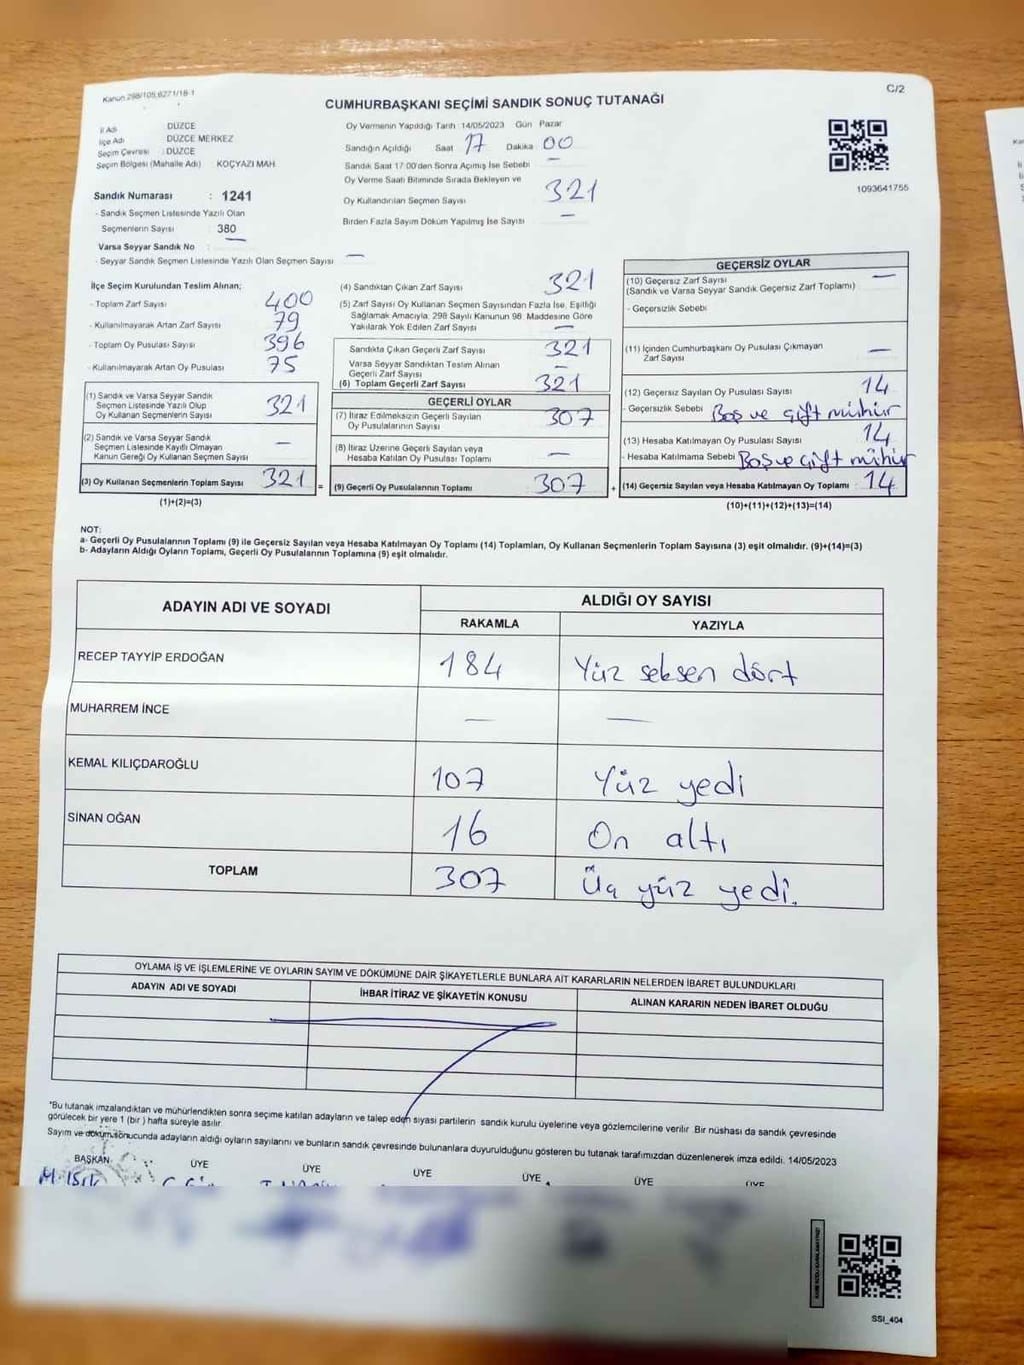 Kanun 298/105,6271/18-1
C/2
CUMHURBAŞKANI SEÇİMİ SANDIK SONUÇ TUTANAĞI
İl Adı DÜZCE
İlçe Adı DÜZCE MERKEZ
Seçim Çevresi : DÜZCE
Seçim Bölgesi (Mahalle Adı) KOÇYAZI MAH.
Sandık Numarası : 1241
- Sandık Seçmen Listesinde Yazılı Olan
Seçmenlerin Sayısı : 380
Varsa Seyyar Sandık No —
- Seyyar Sandık Seçmen Listesinde Yazılı Olan Seçmen Sayısı —
Oy Vermenin Yapıldığı Tarih :14/05/2023 Gün Pazar
Sandığın Açıldığı Saat 17 Dakika 00
Sandık Saat 17:00'den Sonra Açımış İse Sebebi —
Oy Verme Saati Bitiminde Sırada Bekleyen ve
Oy Kullandırılan Seçmen Sayısı 321
Birden Fazla Sayım Döküm Yapılmış İse Sayısı —
1093641755
İlçe Seçim Kurulundan Teslim Alınan;
- Toplam Zarf Sayısı 400
- Kullanılmayarak Artan Zarf Sayısı 79
- Toplam Oy Pusulası Sayısı 396
- Kullanılmayarak Artan Oy Pusulası 75
(1) Sandık ve Varsa Seyyar Sandık
Seçmen Listesinde Yazılı Olup
Oy Kullanan Seçmenlerin Sayısı 321
(2) Sandık ve Varsa Seyyar Sandık
Seçmen Listesinde Kayıtlı Olmayan
Kanun Gereği Oy Kullanan Seçmen Sayısı —
(3) Oy Kullanan Seçmenlerin Toplam Sayısı 321 =
(1)+(2)=(3)
(4) Sandıktan Çıkan Zarf Sayısı 321
(5) Zarf Sayısı Oy Kullanan Seçmen Sayısından Fazla İse, Eşitliği
Sağlamak Amacıyla, 298 Sayılı Kanunun 98. Maddesine Göre
Yakılarak Yok Edilen Zarf Sayısı —
Sandıkta Çıkan Geçerli Zarf Sayısı 321
Varsa Seyyar Sandıktan Teslim Alınan
Geçerli Zarf Sayısı —
(6) Toplam Geçerli Zarf Sayısı 321
GEÇERLİ OYLAR
(7) İtiraz Edilmeksizin Geçerli Sayılan
Oy Pusulalarının Sayısı 307
(8) İtiraz Üzerine Geçerli Sayılan veya
Hesaba Katılan Oy Pusulası Toplamı —
(9) Geçerli Oy Pusulalarının Toplamı 307 +
GEÇERSİZ OYLAR
(10) Geçersiz Zarf Sayısı —
(Sandık ve Varsa Seyyar Sandık Geçersiz Zarf Toplamı)
- Geçersizlik Sebebi
(11) İçinden Cumhurbaşkanı Oy Pusulası Çıkmayan
Zarf Sayısı —
(12) Geçersiz Sayılan Oy Pusulası Sayısı 14
- Geçersizlik Sebebi Boş ve çift mühür
(13) Hesaba Katılmayan Oy Pusulası Sayısı 14
- Hesaba Katılmama Sebebi Boş ve çift mühür
(14) Geçersiz Sayılan veya Hesaba Katılmayan Oy Toplamı 14
(10)+(11)+(12)+(13)=(14)
NOT:
a- Geçerli Oy Pusulalarının Toplamı (9) ile Geçersiz Sayılan veya Hesaba Katılmayan Oy Toplamı (14) Toplamları, Oy Kullanan Seçmenlerin Toplam Sayısına (3) eşit olmalıdır. (9)+(14)=(3)
b- Adayların Aldığı Oyların Toplamı, Geçerli Oy Pusulalarının Toplamına (9) eşit olmalıdır.
ADAYIN ADI VE SOYADI ALDIĞI OY SAYISI
RAKAMLA YAZIYLA
RECEP TAYYİP ERDOĞAN 184 Yüz seksen dört
MUHARREM İNCE — —
KEMAL KILIÇDAROĞLU 107 Yüz yedi
SİNAN OĞAN 16 On altı
TOPLAM 307 Üç yüz yedi.
OYLAMA İŞ VE İŞLEMLERİNE VE OYLARIN SAYIM VE DÖKÜMÜNE DAİR ŞİKAYETLERLE BUNLARA AİT KARARLARIN NELERDEN İBARET BULUNDUKLARI
ADAYIN ADI VE SOYADI İHBAR İTİRAZ VE ŞİKAYETİN KONUSU ALINAN KARARIN NEDEN İBARET OLDUĞU
*Bu tutanak imzalandıktan ve mühürlendikten sonra seçime katılan adayların ve talep eden siyasi partilerin sandık kurulu üyelerine veya gözlemcilerine verilir .Bir nüshası da sandık çevresinde
görülecek bir yere 1 (bir ) hafta süreyle asılır.
Sayım ve döküm sonucunda adayların aldığı oyların sayılarını ve bunların sandık çevresinde bulunanlara duyurulduğunu gösteren bu tutanak tarafımızdan düzenlenerek imza edildi. 14/05/2023
BAŞKAN ÜYE ÜYE ÜYE ÜYE ÜYE ÜYE
M. IŞIK
SSI_404